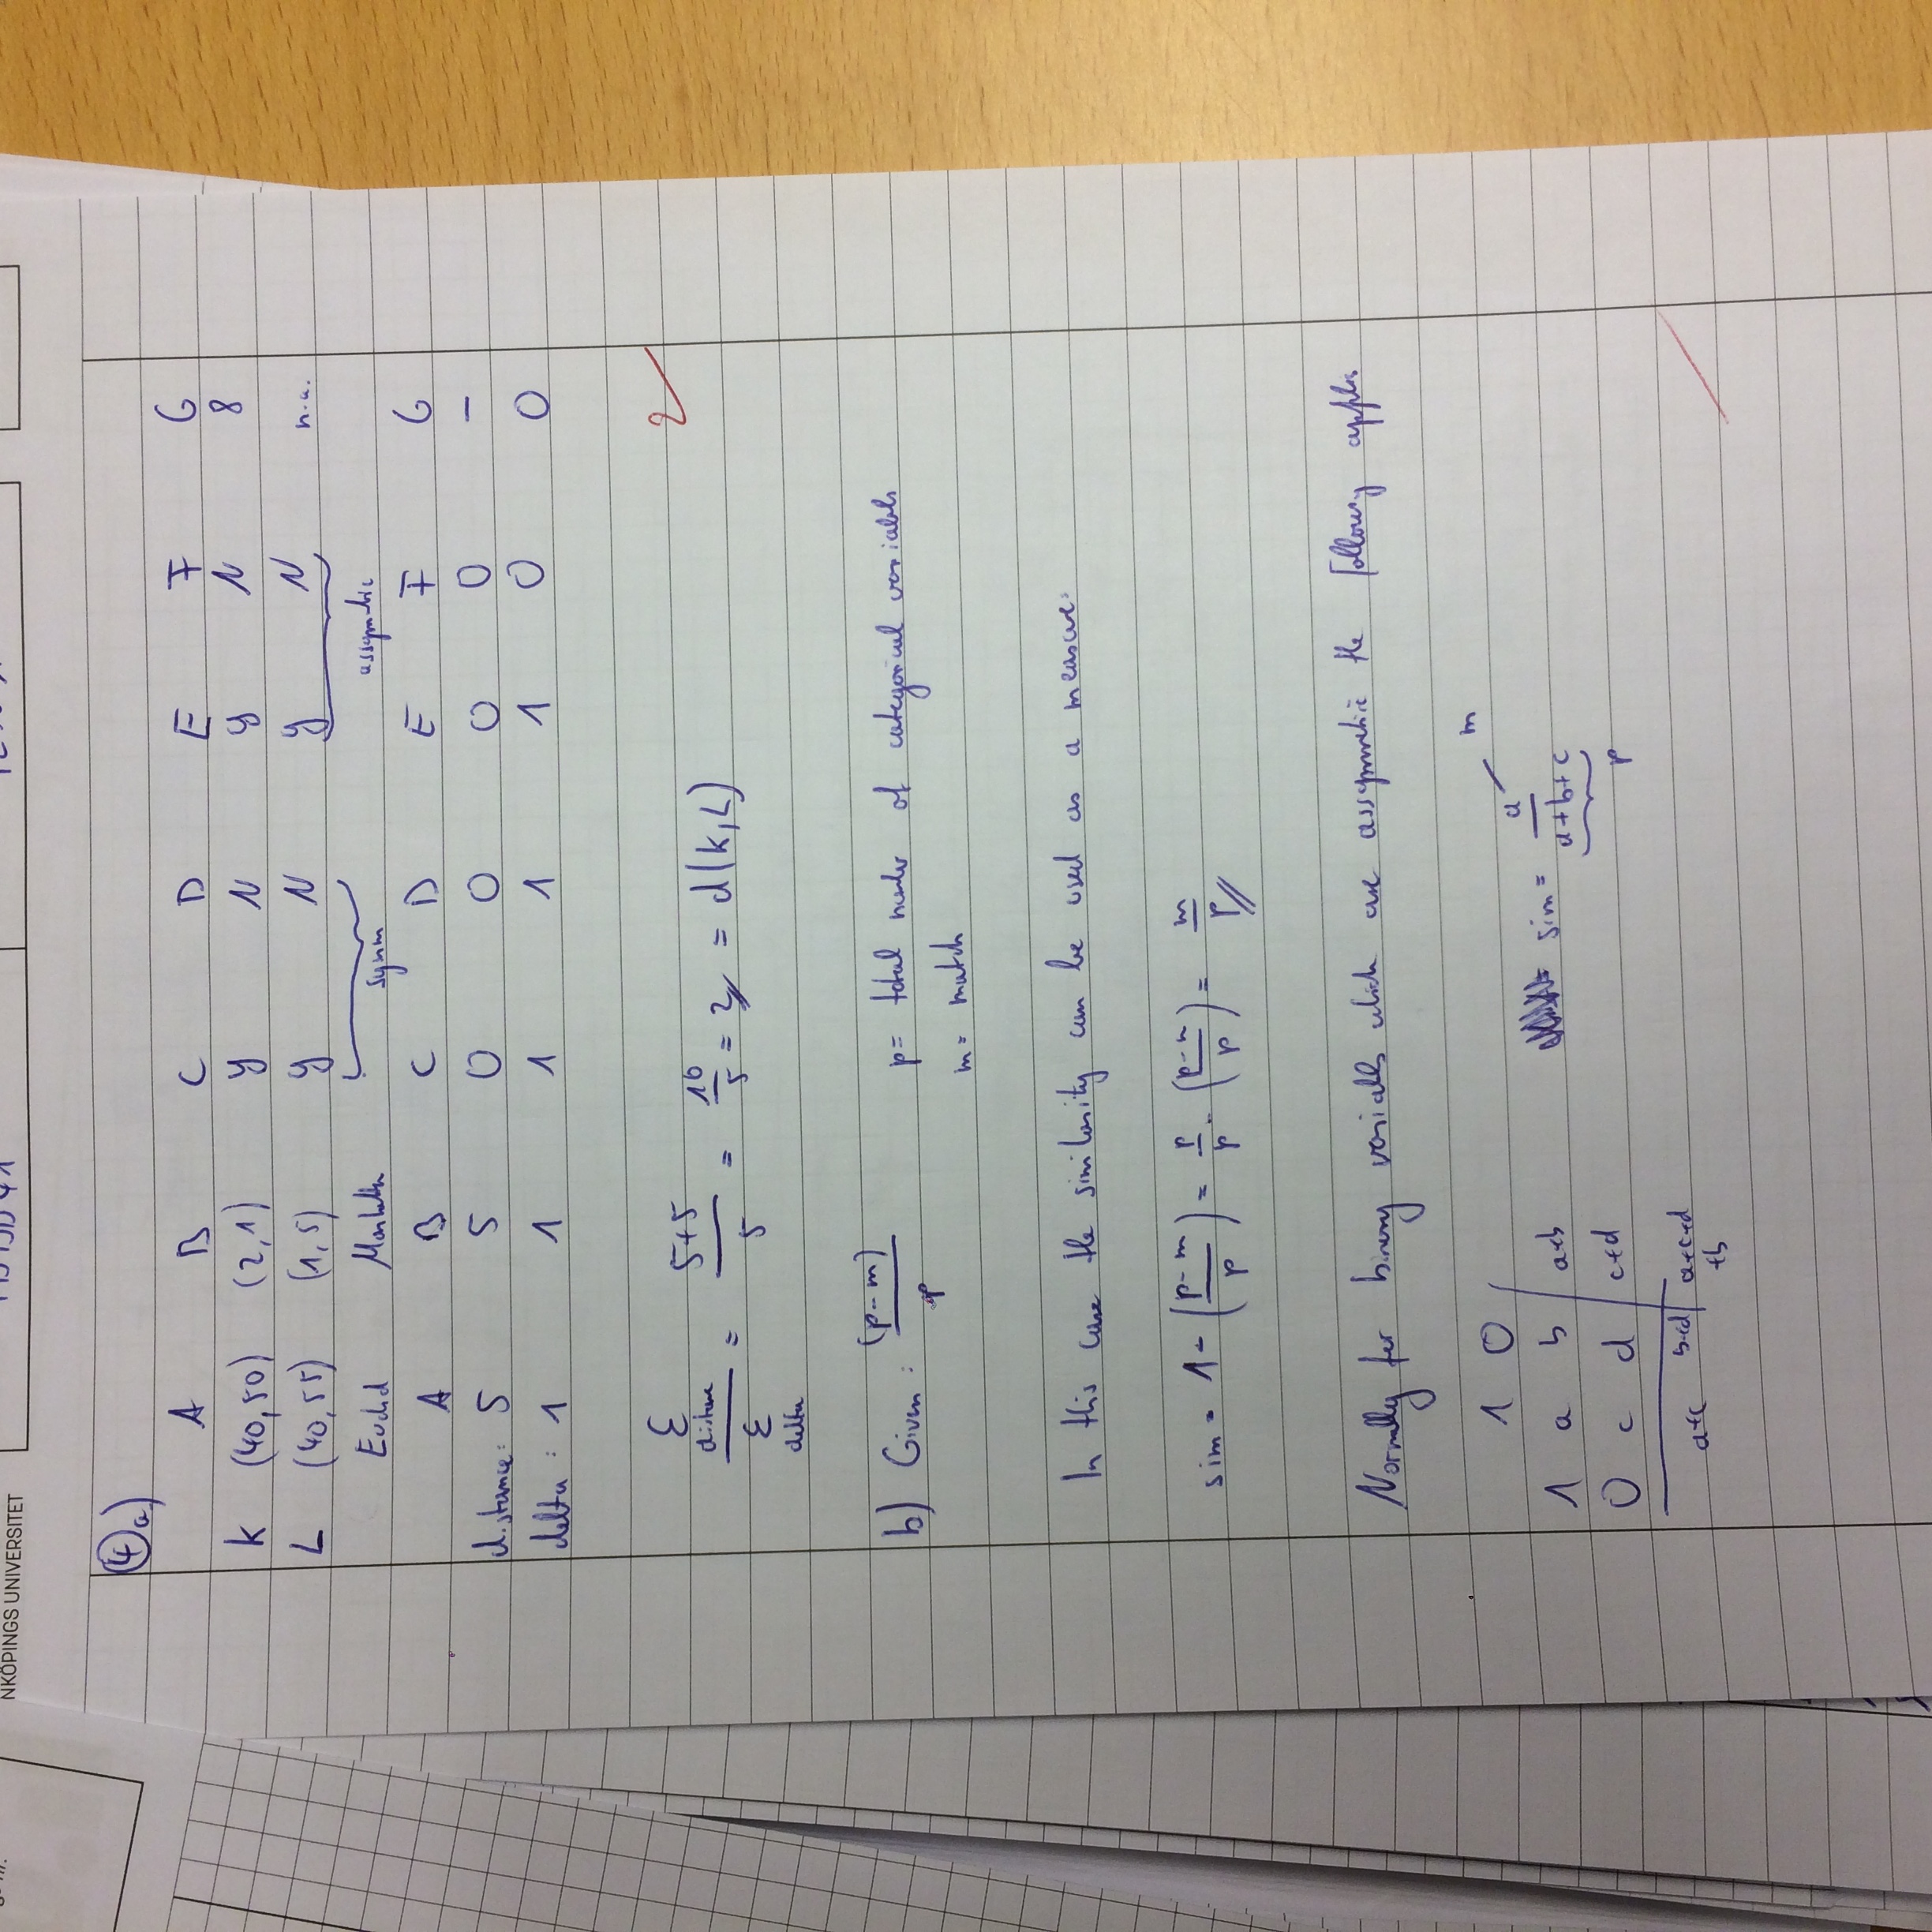 NKÖPINGS UNIVERSITET
④ a)
A B C D E F G
K (40,50) (2,1) y N y N 8
L (40,55) (1,5) y N y N n.a.
Euclid Manhattan symm assymetric
A B C D E F G
distance: 5 5 0 0 0 0 –
delta: 1 1 1 1 1 0 0
2
Σ distance / Σ delta = 5+5 / 5 = 10/5 = 2 = d(K,L)
b) Given: (p-m) / p p = total number of categorical variables
m = match
In this case the similarity can be used as a measure:
sim = 1 - (p-m / p) = p/p - (p-m / p) = m/p
Normally for binary variables which are assymmetric the following applies
1 0
1 a b a+b
0 c d c+d
a+c b+d a+c+d
+b
sim = a / a+b+c
m
p